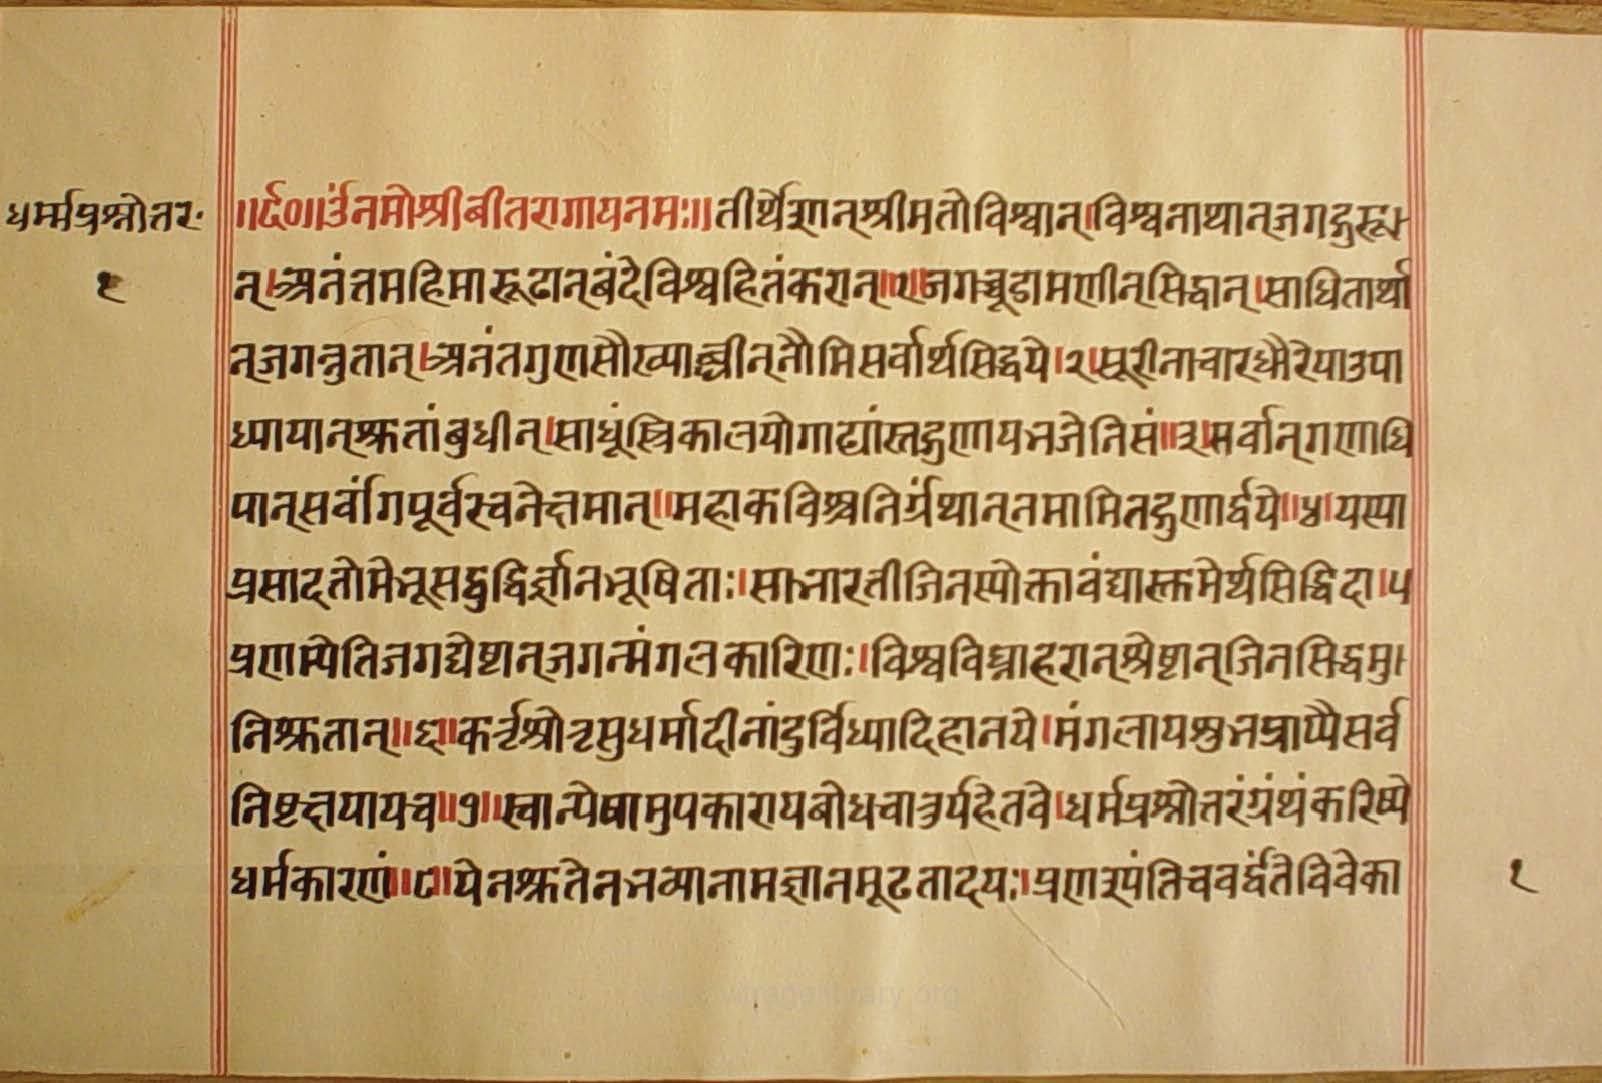 धर्म्मप्रश्नोत्तर॰
१
॥र्द०॥उंनमोश्रीबीतरागायनमः॥तीर्थेशान्श्रीमतोविश्वान्।विश्वनाथान्जगद्गुरू
न्।अनंतमहिमारूढान्बंदेविश्वहितंकरान्॥१॥जगच्चूडामणीन्सिद्धान्।साधितार्था
न्जगन्नुतान्।अनंतगुणसौख्याब्धीन्नौमिसर्वार्थसिद्धये।२।सूरीनाचारधौरेयाउपा
ध्यायान्श्रुतांबुधीन्।साधूंस्त्रिकालयोगाढ्यांस्तद्गुणायभजेनिसं॥३॥सर्वान्गणाधि
पान्सर्वांगपूर्वरचनेत्तमान्॥महाकविश्चनिर्ग्रंथान्नमामितद्गुणार्द्धये॥४॥यस्या
प्रसादतोमेभूसद्बुद्धिर्ज्ञानभूषिताः।साभारतीजिनस्योक्तावंद्यास्तमेर्थसिद्धिदा।५
प्रणम्येतिजगद्येष्टान्जगन्मंगलकारिणः।विश्वविघ्नाहरान्श्रेष्टान्जिनसिद्धमु
निश्रुतान्॥६॥कर्तृश्रोतृसुधर्मादीनांदुर्विध्यादिहानये।मंगलायशुभप्राप्यैसर्व
निष्टक्षयायच॥७॥स्वान्येषामुपकारायबोधचातुर्यहेतवे।धर्मप्रश्नोतरंग्रंथंकरिष्ये
धर्मकारणं॥८॥येनश्रुतेनभव्यानामज्ञानमूढतादयः।प्रणश्यंतिचवर्द्धंतेविवेका
१